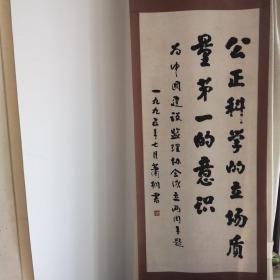 公正科学的立场质
量第一的意识
为中国建设监理协会成立两周年题
一九九五年七月 萧桐书